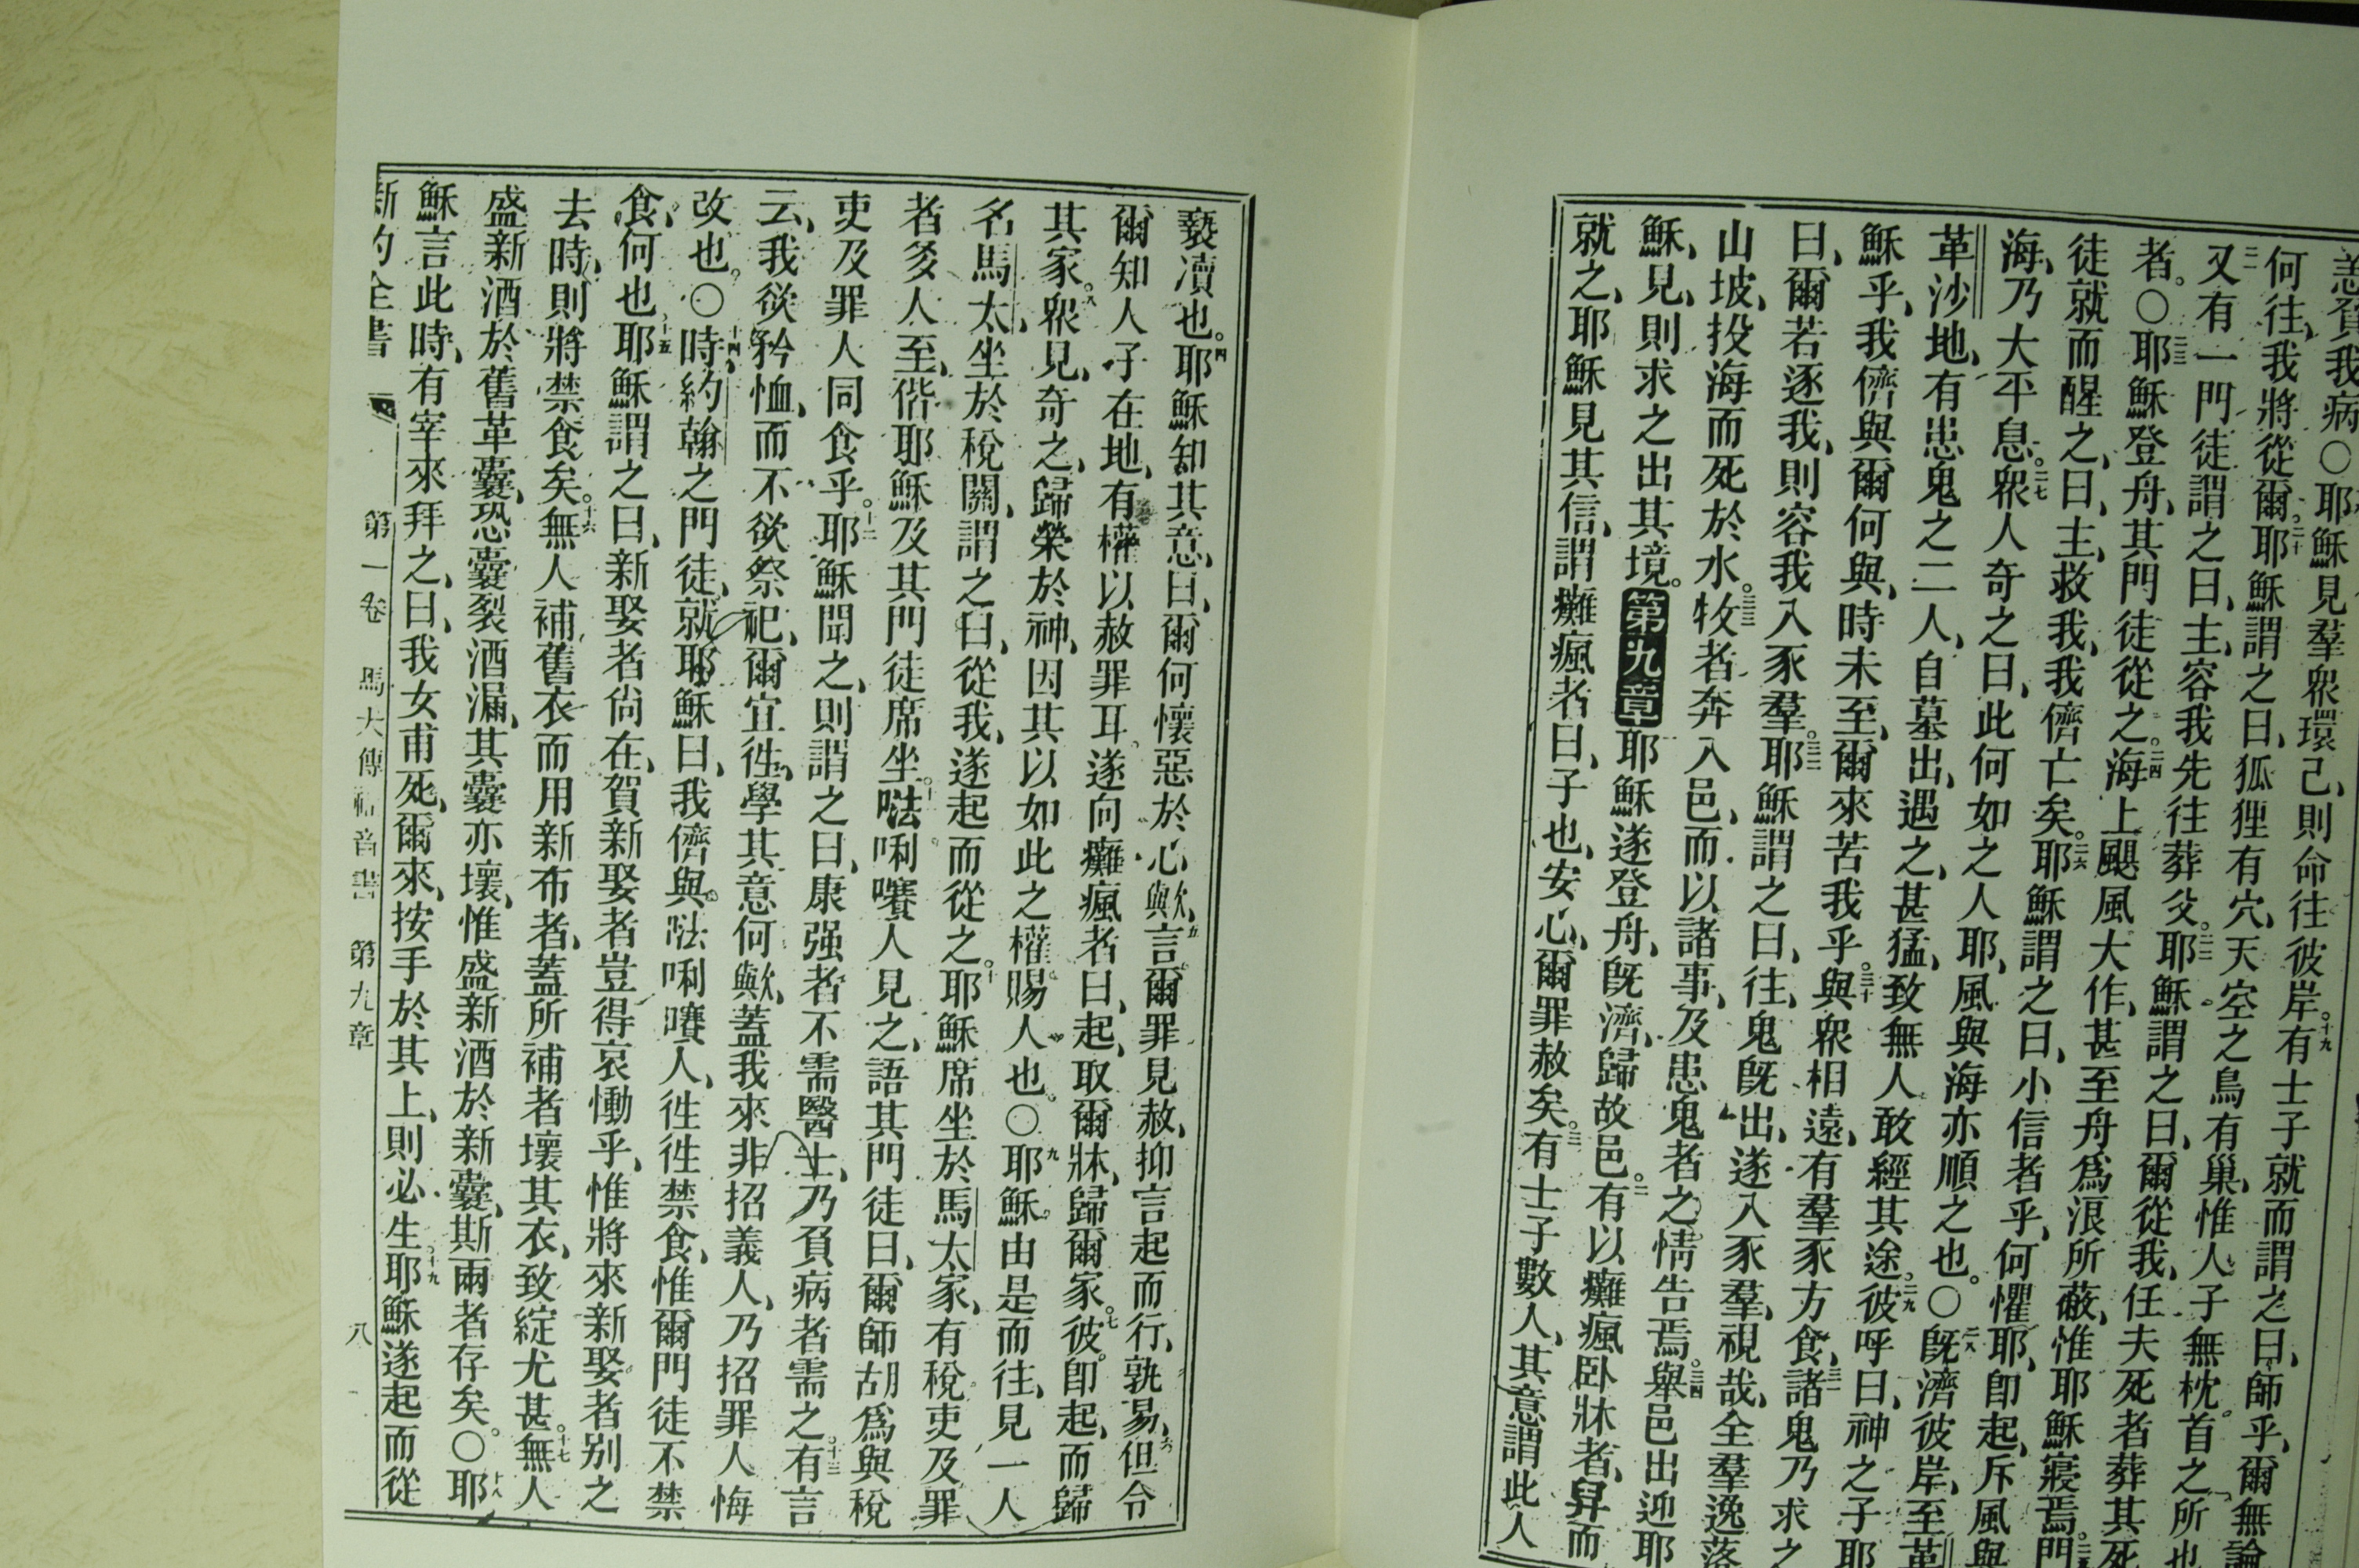 恙負我病〇耶穌見羣衆環己、則命往彼岸。十九有士子就而謂之曰、師乎、爾無論
何往、我將從爾。二十耶穌謂之曰、狐狸有穴、天空之鳥有巢、惟人子無枕首之所也
二一又有一門徒謂之曰、主、容我先往葬父。二二耶穌謂之曰、爾從我、任夫死者葬其死
者。〇二三耶穌登舟、其門徒從之。二四海上颶風大作、甚至舟爲浪所蔽、惟耶穌寢焉。二五門
徒就而醒之、曰、主、救我、我儕亡矣。二六耶穌謂之曰、小信者乎、何懼耶、卽起、斥風與
海、乃大平息。二七衆人奇之、曰、此何如之人耶、風與海亦順之也。〇二八旣濟彼岸、至革
革沙地、有患鬼之二人、自墓出、遇之、甚猛、致無人敢經其途。二九彼呼曰、神之子耶
穌乎、我儕與爾何與、時未至、爾來苦我乎。三十與衆相遠、有羣豕方食、三一諸鬼乃求之
曰、爾若逐我、則容我入豕羣。三二耶穌謂之曰、往、鬼旣出、遂入豕羣、視哉、全羣逸落
山坡、投海而死於水。三三牧者奔入邑、而以諸事、及患鬼者之情告焉。三四舉邑出迎耶
穌、見、則求之出其境。第九章耶穌遂登舟、旣濟、歸故邑。二有以癱瘋臥牀者、舁而
就之、耶穌見其信、謂癱瘋者曰、子也、安心、爾罪赦矣。三有士子數人、其意謂此人
褻瀆也。四耶穌知其意、曰、爾何懷惡於心歟、五言爾罪見赦、抑言起而行、孰易、六但令
爾知人子在地、有權以赦罪耳。遂向癱瘋者曰、起、取爾牀、歸爾家。七彼卽起、而歸
其家。八衆見、奇之、歸榮於神、因其以如此之權賜人也。〇九耶穌由是而往、見一人
名馬太、坐於稅關、謂之曰、從我、遂起而從之。十耶穌席坐於馬太家、有稅吏及罪
者多人至、偕耶穌及其門徒席坐。十一𠵽唎㘔人見之、語其門徒曰、爾師胡爲與稅
吏及罪人同食乎。十二耶穌聞之、則謂之曰、康强者不需醫士、乃負病者需之。十三有言
云、我欲矜恤、而不欲祭祀、爾宜徃學其意何歟、蓋我來非招義人、乃招罪人悔
改也。〇十四時約翰之門徒、就耶穌曰、我儕與𠵽唎㘔人、徃徃禁食、惟爾門徒不禁
食、何也、十五耶穌謂之曰、新娶者尙在、賀新娶者豈得哀慟乎、惟將來新娶者別之
去時、則將禁食矣。十六無人補舊衣而用新布者、蓋所補者壞其衣、致綻尤甚。十七無人
盛新酒於舊革囊、恐囊裂酒漏、其囊亦壞、惟盛新酒於新囊、斯兩者存矣。〇十八耶
穌言此時、有宰來拜之、曰、我女甫死、爾來、按手於其上、則必生。十九耶穌遂起而從
新約全書 第一卷 馬太傳福音書 第九章 八